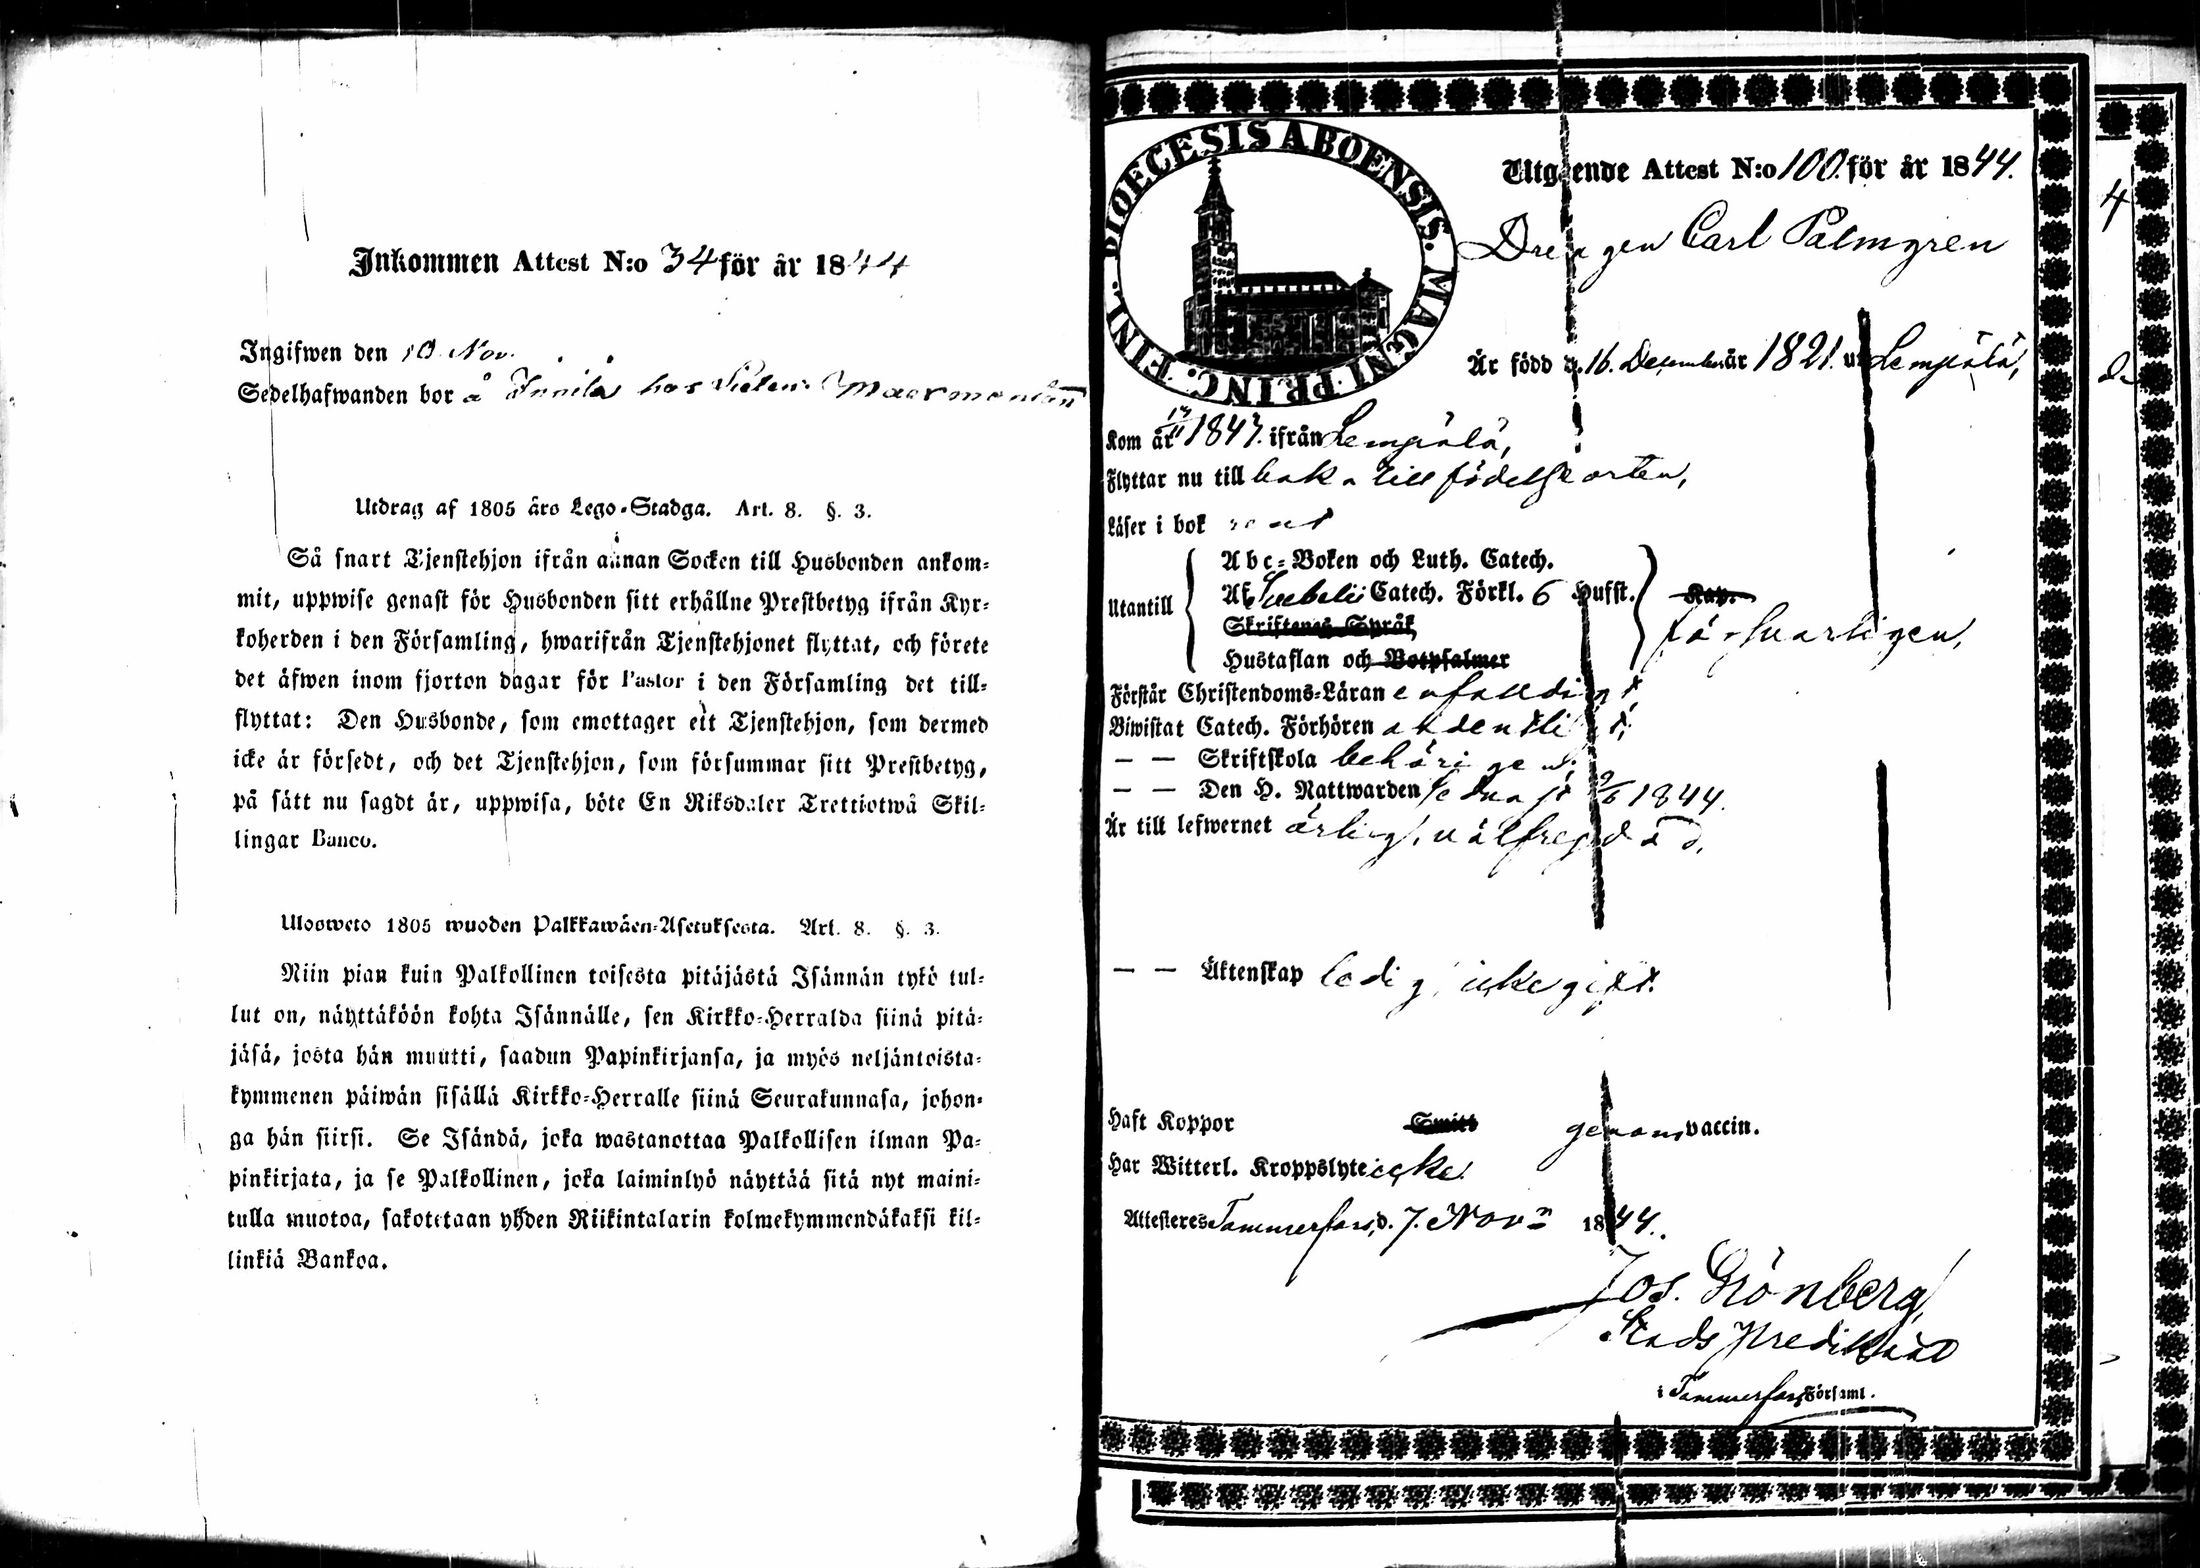 Inkommen Attest N:o 34 för år 1844
Ingifwen den 10 Nov.
Sedelhafwanden bor å Innilä hos
Utdrag af 1805 års Lego-Stadga. Art. 8. §. 3.
Så snart Tjenstehjon ifrån annan Socken till Husbonden ankom-
mit, uppwise genast för Husbonden sitt erhållne Prestbetyg ifrån Kyr-
koherden i den Församling, hwarifrån Tjenstehjonet flyttat, och förete
det äfwen inom fjorton dagar för Pastor i den Församling det till-
flyttat: Den Husbonde, som emottager ett Tjenstehjon, som dermed
icke är försedt, och det Tjenstehjon, som försummar sitt Prestbetyg,
på sätt nu sagdt är, uppwisa, böte En Riksdaler Trettiotwå Skil-
lingar Banco.
Ulosweto 1805 wuoden Palkkawäen-Asetuksesta. Art. 8. §. 3.
Niin pian kuin Palkollinen toisesta pitäjästä Isännän tykö tul-
lut on, näyttäköön kohta Isännälle, sen Kirkko-Herralda siinä pitä-
jäsä, josta hän muutti, saadun Papinkirjansa, ja myös neljäntoista-
kymmenen päiwän sisällä Kirkko-Herralle siinä Seurakunnasa, johon-
ga hän siirsi. Se Isändä, joka wastanottaa Palkollisen ilman Pa-
pinkirjata, ja se Palkollinen, joka laiminlyö näyttää sitä nyt maini-
tulla muotoa, sakotetaan yhden Riikintalarin kolmekymmendäkaksi kil-
linkiä Bankoa.
DIOECESIS ABOENSIS. MAGNI PRINC. FINL.
Utgående Attest N:o 100. för år 1844.
Drengen Carl Palmgren
Är född d. 16. December år 1821. uti Lempälä,
Kom år 1843. ifrån Lempälä,
Flyttar nu till baka till födelse orten,
Läser i bok rent
Utantill
Abc-Boken och Luth. Catech.
Af Svebelii Catech. Förkl. 6 Hufst.
Skriftenes Språk
Hustaflan och Botpsalmer
Kap.
försvarligen,
Förstår Christendoms-Läran enfaldigt
Biwistat Catech. Förhören ordentligt,
— — Skriftskola behörigen,
— — Den H. Nattwarden sednast 9/6 1844.
Är till lefwernet ärlig, välfregdad,
— — Äktenskap ledig, icke gift.
Haft Koppor Smitt genom vaccin.
Har Witterl. Kroppslyte icke.
Attesteres Tammerfors, d. 7. Nov:n 1844.
Jos. Grönberg,
Stads Predikant
i Tammerfors Församl.
4